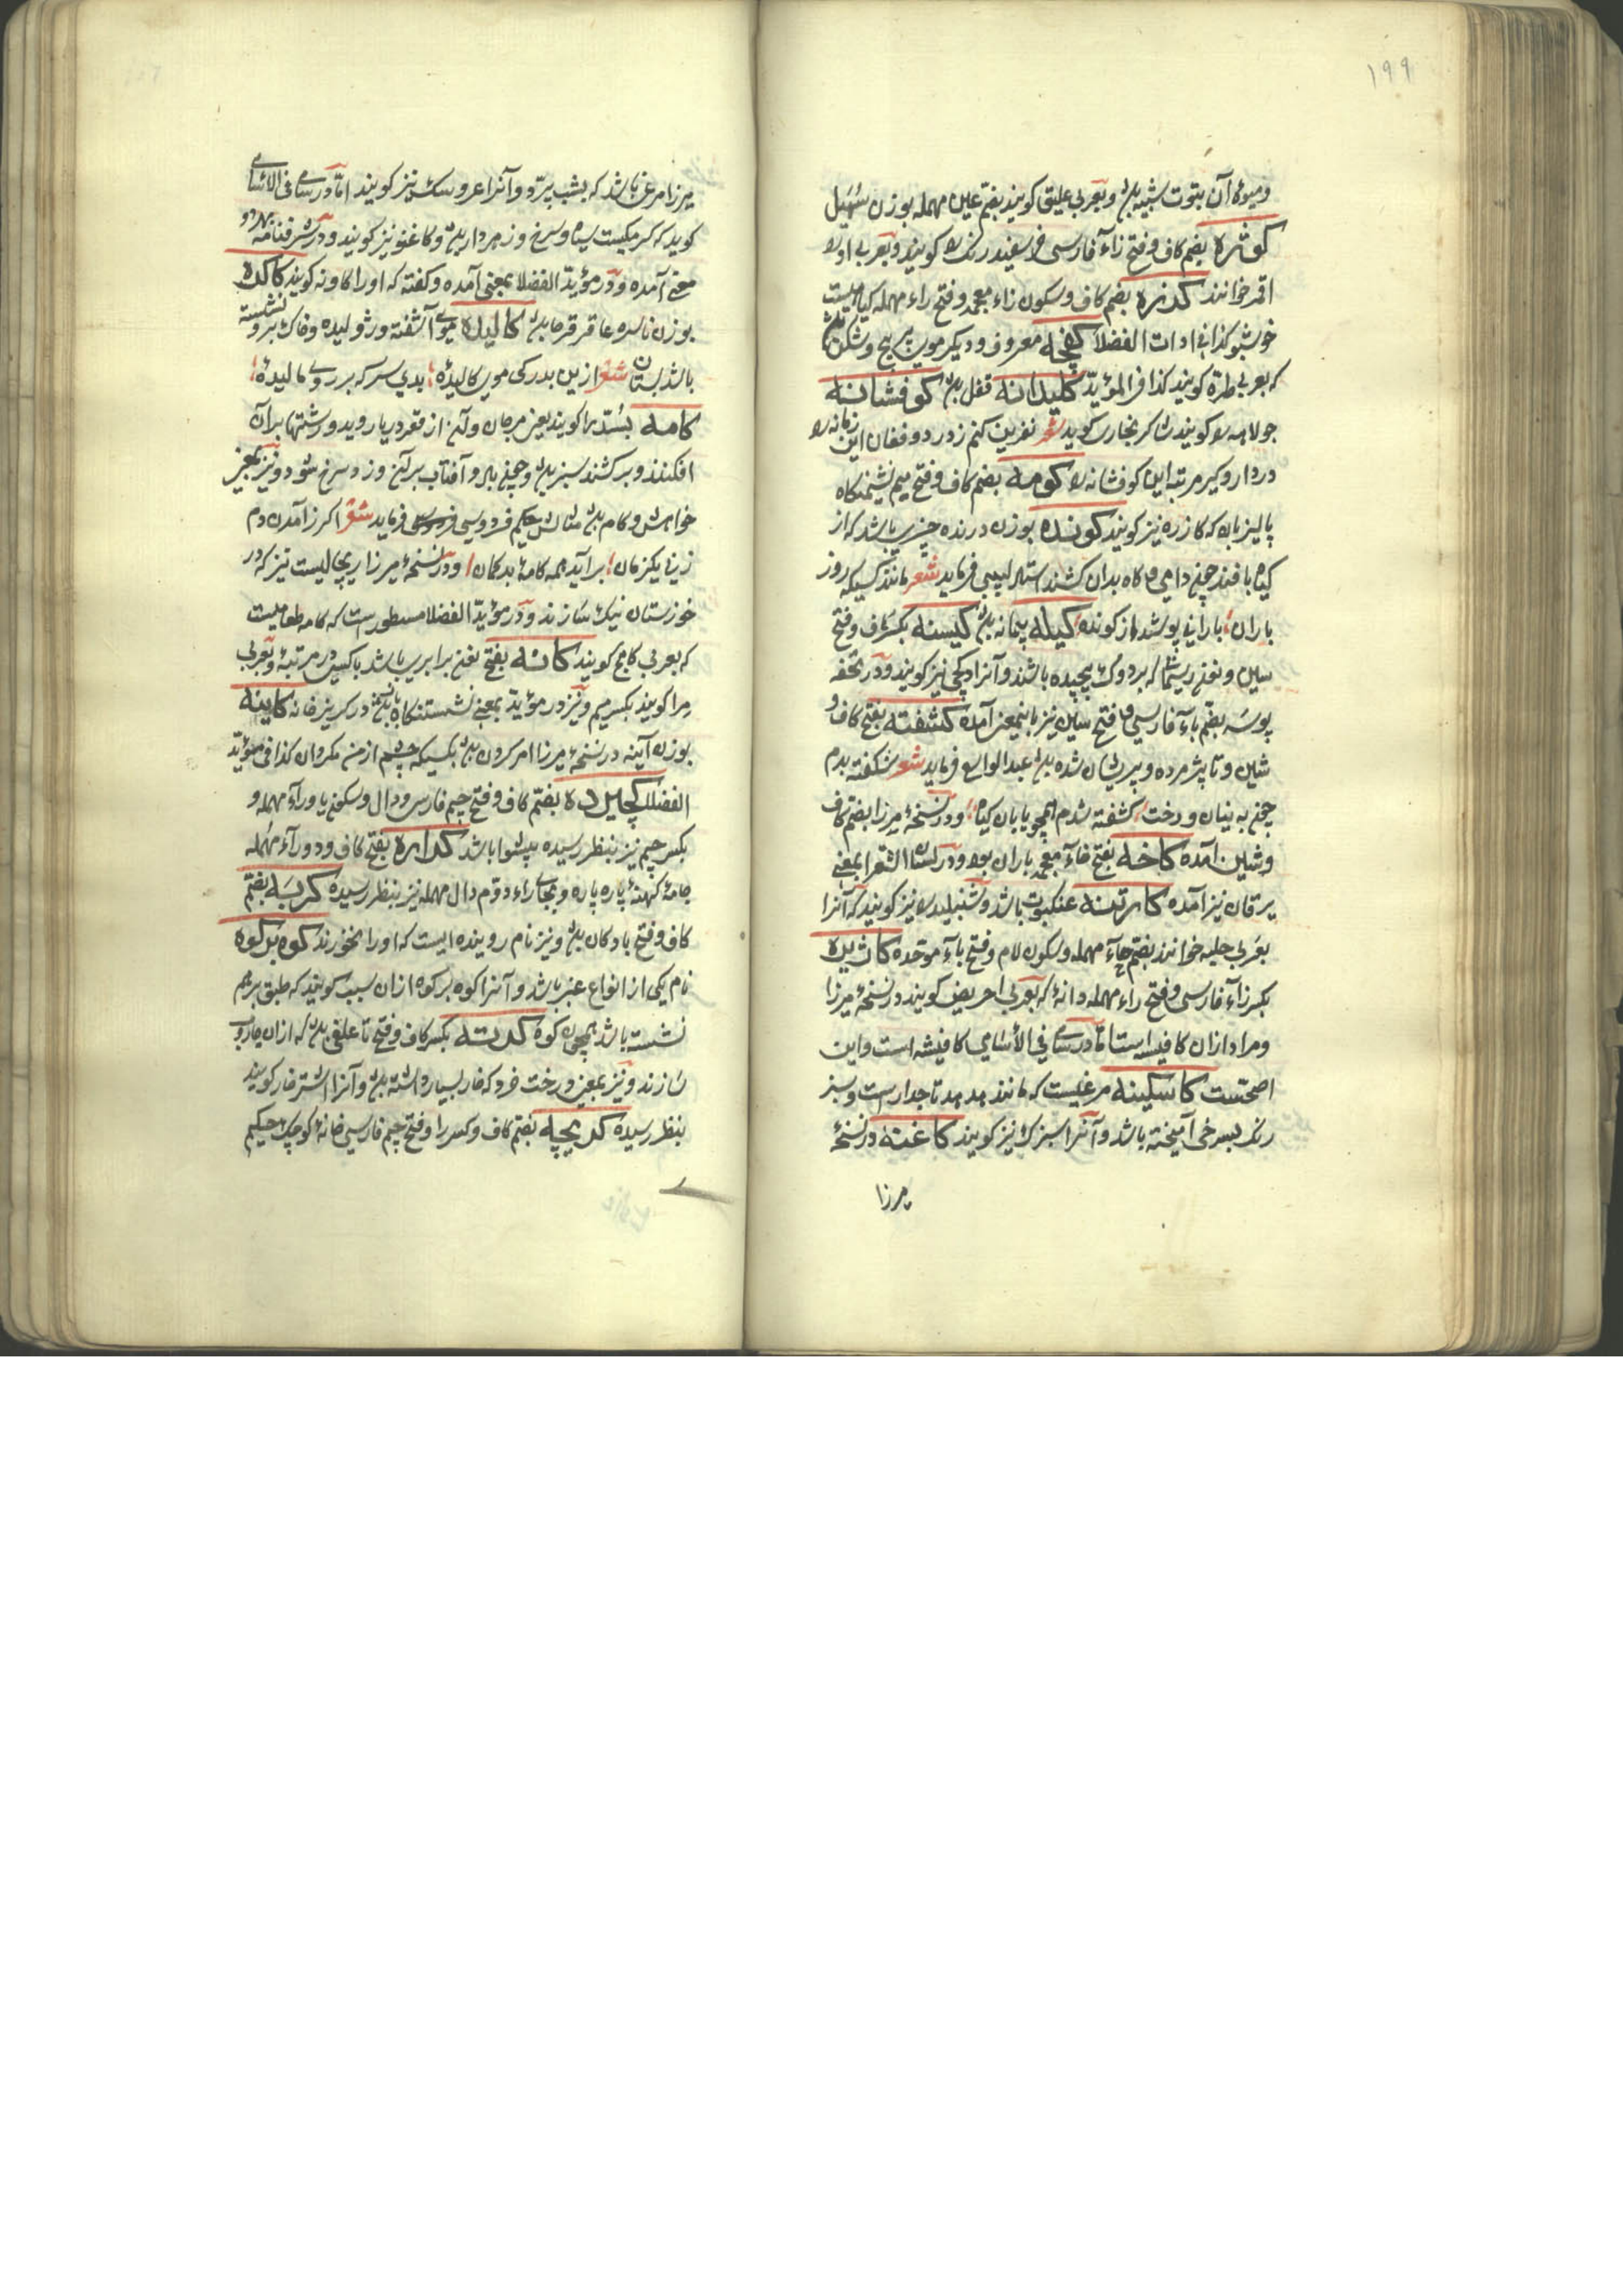 ١٩٩
ومیوه آن بتوت شبیه بود وبعربی علیق کویند بضم عین مهمله بوزن سُهَیل
کوژه بضم کاف وفتح زاء فارسی خر سفید رنک را کویند وبعربی اورا
اقمر خوانند کدزه بضم کاف وسکون زاء معجمه وفتح راء مهمله کیاهیست
خوشبو کذا فی ادات الفضلا کفچه معروف ودیکر موی پر پیچ وشکن باشد
که بعربی طرّه کویند کذا فی المؤیّد کلیدانه قفل بود کوفشانه
جولاهه را کویند شاکر بخاری کوید شعر نفرین کنم ز درد وفغان این زمانه را
درداد وکبر مرتبه این کوفشانه را کومه بضم کاف وفتح میم نشیمنکاه
پالیزبان که کازه نیز کویند کونده بوزن درنده چیزی باشد که از
کیاه بافند چنی دامی وکاه بدان کشند استاد لبیبی فرماید شعر مانند کسیکه روز
باران بارانی پوشد از کونده کیله پیمانه بود کیسنه بکسر کاف وفتح
سین ونون ریسمان که بر دوک پیچیده باشند وآنرا دوکچی نیز کویند ودر تحفه
پوسه بضم باء فارسی وفتح سین نیز باینمعنی آمده کشفته بفتح کاف و
شین وتا پژمرده وپریشان شده بود عبد الواسع فرماید شعر شکفته بدم
چنی به بنیان ودرخت کشفته شدم همچو یابان کیاه ودر نسخهٔ میرزا بضم کاف
وشین آمده کاخه بفتح خاء معجمه باران بود ودر لسان الشعرا بمعنی
یرقان نیز آمده کارتنه عنکبوت باشد وشنبلیدرا نیز کویند که آنرا
بعربی حلبه خوانند بضم حاء مهمله وسکون لام وفتح باء موحّده کاژیره
بکسر زاء فارسی وفتح راء مهمله دانهٔ که بعربی احریض کویند در نسخهٔ میرزا
ومراد ازان کافیسه است اما در سامی فی الأسامی کافیشه است واین
اصحّست کاسکینه مرغیست که مانند هدهد تاجدار است وسبز
رنک بسرخی آمیخته باشد وآنرا سبزک نیز کویند کاغنه در نسخهٔ
میرزا
میرزا مرغی باشد که بشب پرّد وآنرا عروسک نیز کویند اما در سامی فی الاسامی
کوید که کرمیکست سیاه وسرخ وزهردار بود وکاغنو نیز کویند ودر شرفنامه بهر دو
معنی آمده ودر مؤیّد الفضلا بمعنی آمده وکفته که اورا کاونه کویند کاکره
بوزن ناسره عاقرقرحا بود کالیده موی آشفته وژولیده وخاک بر او نشسته
باشد شعر ازین بدرکی موی کالیدهٔ بدی سرکه بر روی مالیدهٔ
کامه بُسّدرا کویند یعنی مرجان وآن از قعر دریا روید ورشتها بر آن
افکنند وبر کشند سبز بود وچون باد وآفتاب بر آن وزد سرخ شود ونیز بمعنی
خواهش وکام بود مثالش حکیم فردوسی فرماید شعر اکر زآمدن دم
زنی یکزمان برآید همه کامهٔ بدکمان ودر نسخهٔ میرزا ریچالیست نیز که در
خوزستان نیک سازند ودر مؤیّد الفضلا مسطور است که کامه طعامیست
که بعربی کامخ کویند کانه بفتح نون برابری باشد باکس در مرتبهٔ وبعربی
مرا کویند بکسر میم ونیز در مؤیّد بمعنی نشستنکاه در کریزخانه کاینه
بوزن آینه در نسخهٔ میرزا امر کردن بود بکسیکه چشم از من مکردان کذا فی مؤیّد
الفضلا کچیرده بضم کاف وفتح جیم فارسی ودال وسکون یا وراء مهمله و
بکسر جیم نیز بنظر رسیده پیشوا باشد کداره بفتح کاف ودو راء مهمله
جامهٔ کهنهٔ پاره پاره وبجای راء دوم دال مهمله نیز بنظر رسیده کربه بضم
کاف وفتح با دکان بود ونیز نام رویندهٔ ایست که اورا بخورند کوه بر کوه
نام یکی از انواع عنبر باشد وآنرا کوه بر کوه ازان سبب کویند که طبق بر هم
نشسته باشد همچون کوه کرسته بکسر کاف وفتح تا علفی بود که ازان جاروب
سازند ونیز بمعنی درخت خرد که خار بسیار داشته بود وآنرا اشترخار کویند
بنظر رسیده کریچه بضم کاف وکسر را وفتح جیم فارسی خانهٔ کوچک حکیم